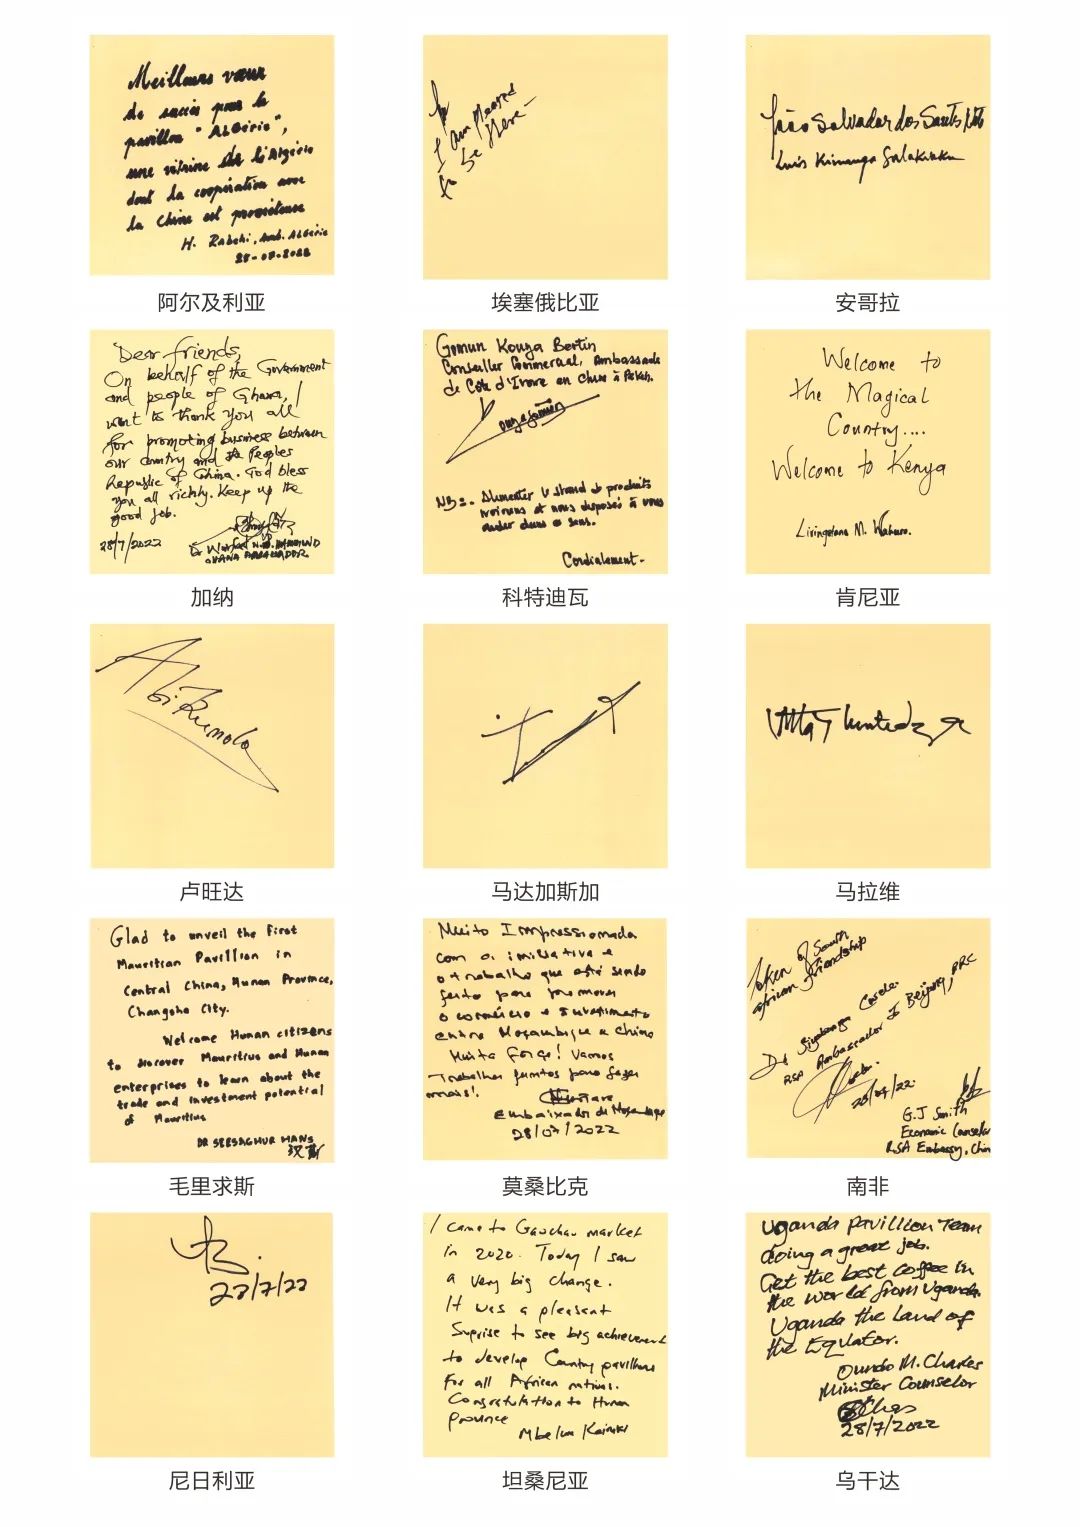 Meilleurs vœux
de succès pour le
pavillon "ALGérie",
une vitrine de l'Algérie
dont la coopération avec
la Chine est prometteuse
H. Rabehi, Amb. Algérie
28-07-2022
阿尔及利亚
I am pleased
to be Here
埃塞俄比亚
João Salvador dos Santos Neto
Luis Kimanga
安哥拉
Dear friends,
On behalf of the Government
and people of Ghana, I
want to thank you all
for promoting business between
our country and the Peoples
Republic of China. God bless
you all richly. Keep up the
good job.
28/7/2022
GHANA AMBASSADOR
加纳
Gomun Kouya Bertin
Conseiller Commercial, Ambassade
de Côte d'Ivoire en Chine à Pékin.
NB:- Alimenter le stand de produits
ivoiriens et nous disposés à vous
aider dans ce sens.
Cordialement.
科特迪瓦
Welcome to
the Magical
Country....
Welcome to Kenya
Livingstone M.
肯尼亚
卢旺达
马达加斯加
马拉维
Glad to unveil the first
Mauritian Pavillion in
Central China, Hunan Province,
Changsha City.
Welcome Hunan citizens
to discover Mauritius and Hunan
enterprises to learn about the
trade and investment potential
of Mauritius
DR SEESAGHUR HANS
汉斯
毛里求斯
Muito Impressionada
com a iniciativa e
o trabalho que está sendo
feito para promover
o comércio e investimento
entre Moçambique e China
Muita força! Vamos
Trabalhar juntos para fazer
mais!.
Embaixador de Moçambique
28/07/2022
莫桑比克
Token of South
African friendship
Dr Siyabonga
RSA Ambassador to Beijing, PRC
28/07/22.
G.J Smith
Economic Counselor
RSA Embassy, China
南非
28/7/22
尼日利亚
I came to Gaoqiao market
in 2020. Today I saw
a very big change.
It was a pleasant
Suprise to see big achievement
to develop Country pavilions
For all African nations.
Congratulation to Hunan
province
Mbelwa Kairuki
坦桑尼亚
Uganda pavillion Team
doing a great job.
Get the best coffee in
the world from Uganda.
Uganda the Land of
the Equator.
Oundo M. Charles
Minister Counselor
28/7/2022
乌干达